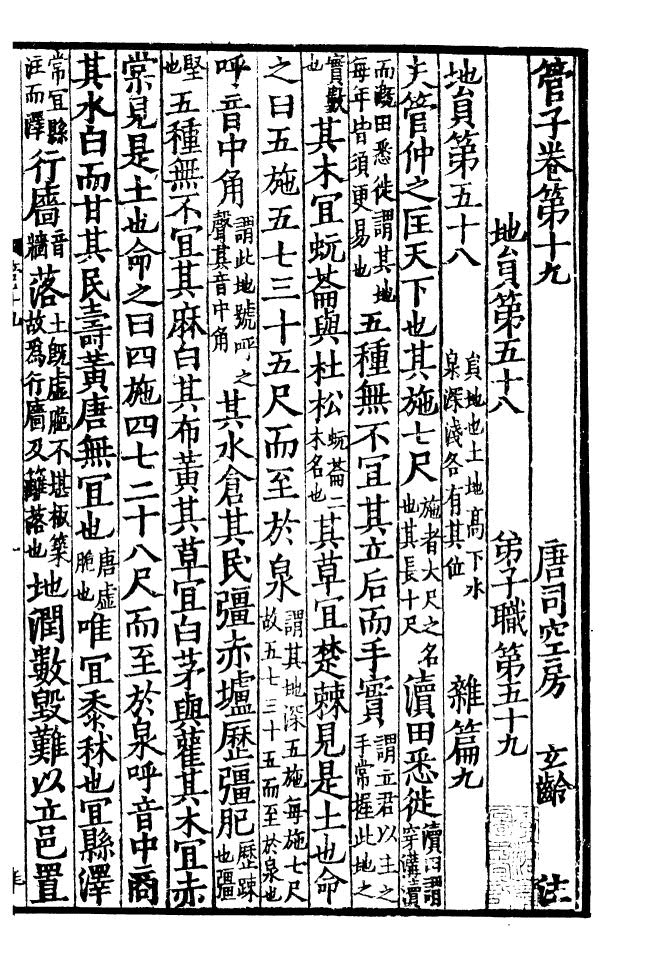 管子卷第十九　唐司空房　玄齡　注
地員第五十八　弟子職第五十九
地員第五十八　員地也土地高下水泉深淺各有其位　雜篇九
夫管仲之匡天下也其施七尺施者大尺之名也其長十尺瀆田悉徙瀆田謂穿溝瀆
而漑田悉徙謂其地每年皆須更易也五種無不宜其立后而手實謂立君以主之手常握此地之
實數也其木宜蚖菕與杜松蚖菕二木名也其草宜楚棘見是土也命
之曰五施五七三十五尺而至於泉謂其地深五施每施七尺故五七三十五而至於泉也
呼音中角謂此地號呼之聲其音中角其水倉其民彊赤壚歷彊肥歷疎也彊
堅也五種無不宜其麻白其布黃其草宜白茅與雚其木宜赤
棠見是土也命之曰四施四七二十八尺而至於泉呼音中商
其水白而甘其民壽黃唐無宜也唐虛脆也唯宜黍秫也宜縣澤
常宜縣注而澤行廧音牆落土旣虛脆不堪板築故爲行廧及籬落也地潤數毀難以立邑置